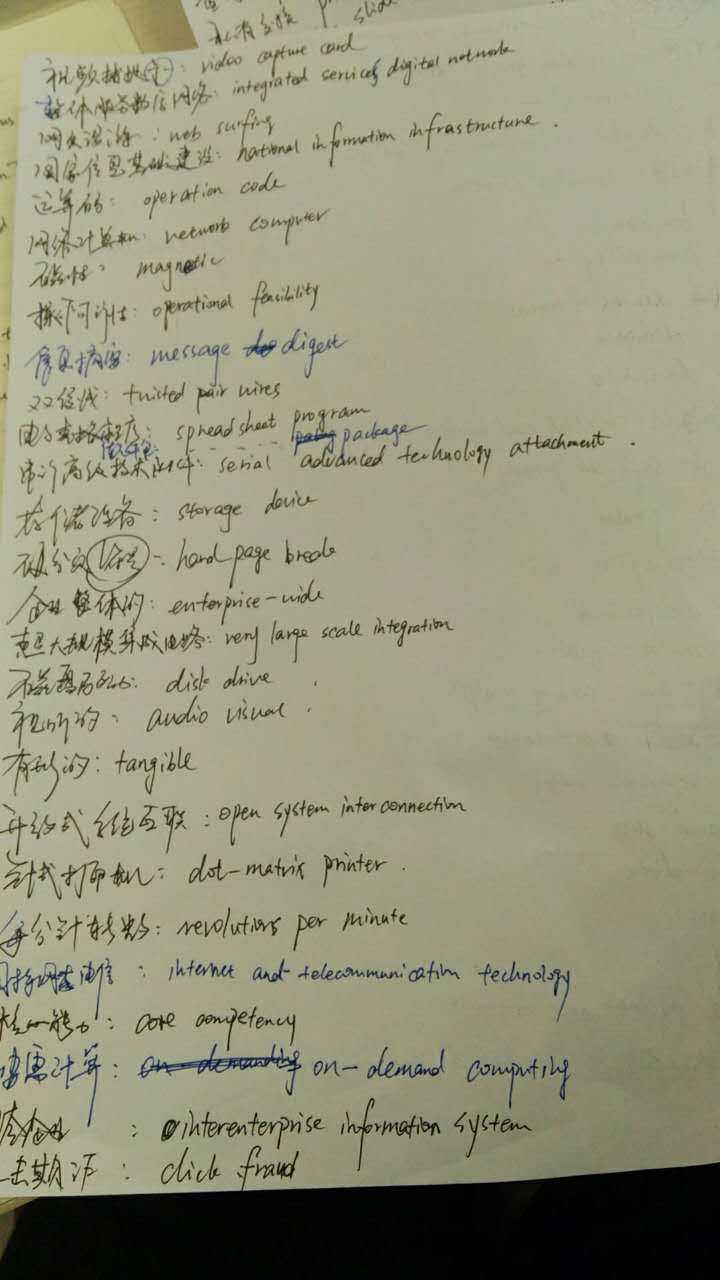 永存分页 p
slide
视频捕捉卡: video capture card
整体服务数字网络: integrated services digital network
网页漫游: web surfing
国家信息基础建设: national information infrastructure.
运算码: operation code
网络计算机: network computer
磁性: magnetic
操作可行性: operational feasibility
信息摘要: message digest
双绞线: twisted pair wires
电子表格程序: spreadsheet program
软件包 package
串行高级技术附件: serial advanced technology attachment.
存储设备: storage device
硬分页: hard page break
企业整体的: enterprise-wide
超大规模集成电路: very large scale integration
磁盘驱动: disk drive.
视听的: audio visual.
有形的: tangible
开放式系统互联: open system interconnection
针式打印机: dot-matrix printer.
每分针转数: revolutions per minute
: internet and telecommunication technology
核心能力: core competency
需计算: on-demand computing
: interenterprise information system
击欺诈: click fraud